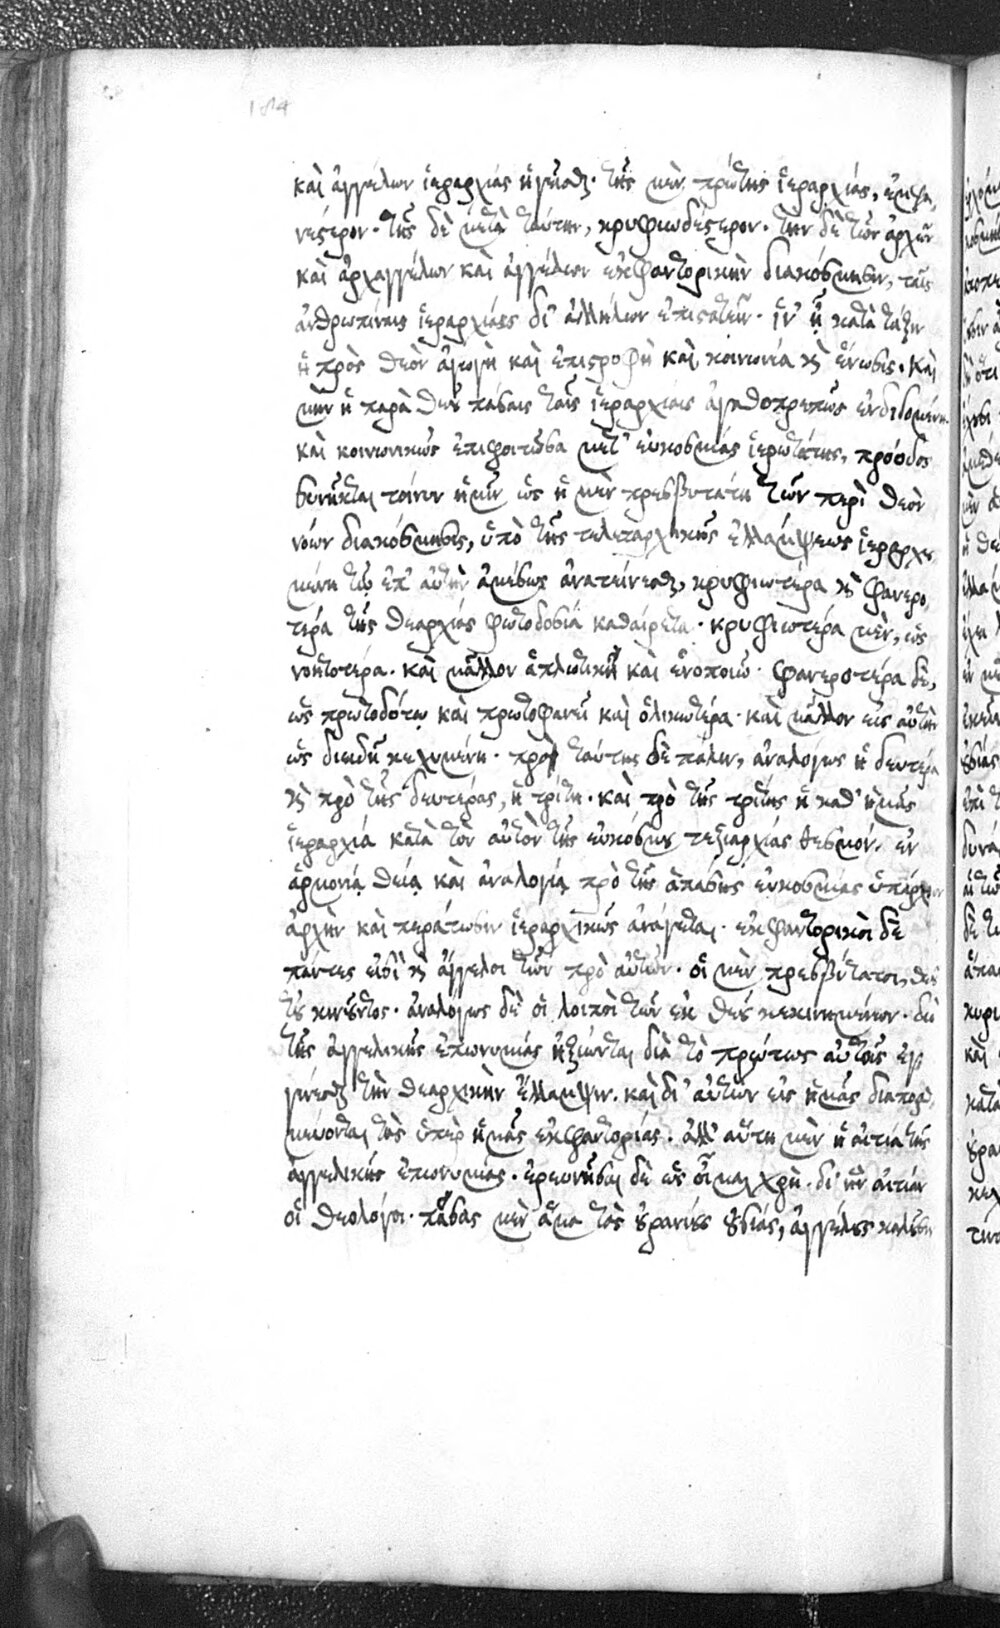 184
καὶ ἀγγέλων ἱεραρχίας ἡγεῖσθαι· τῆς μὲν πρώτης ἱεραρχίας, ἐμφα
νέστερον· τῆς δὲ μετὰ ταύτην, κρυφιωδέστερον· τὴν δὲ τῶν ἀρχῶν
καὶ ἀρχαγγέλων καὶ ἀγγέλων ἐκφαντορικὴν διακόσμησιν, ταῖς
ἀνθρωπίναις ἱεραρχίαις δι' ἀλλήλων ἐπιστατεῖν· ἵν' ᾖ κατὰ τάξιν
ἡ πρὸς θεὸν ἀγωγὴ καὶ ἐπιστροφὴ καὶ κοινωνία καὶ ἕνωσις· καὶ
μὴν ἡ παρὰ θεοῦ πάσαις ταῖς ἱεραρχίαις ἀγαθοπρεπῶς ἐνδιδομένη
καὶ κοινωνικῶς ἐπιφοιτῶσα μετ' εὐκοσμίας ἱερωτάτης, πρόοδος
συνῆκται τοίνυν ἡμῖν ὡς ἡ μὲν πρεσβυτάτη τῶν περὶ θεὸν
νόων διακόσμησις, ὑπὸ τῆς τελεταρχικῆς ἐλλάμψεως ἱεραρχου
μένη τῷ ἐπ' αὐτὴν ἀμέσως ἀνατείνεσθαι, κρυφιωτέρα καὶ φανερο
τέρα τῆς θεαρχίας φωτοδοσία καθαίρεται· κρυφιωτέρα μὲν, ὡς
νοητοτέρα· καὶ μᾶλλον ἁπλωτικῇ καὶ ἑνοποιῷ· φανεροτέρα δὲ,
ὡς πρωτοδότῳ καὶ πρωτοφανεῖ καὶ ὁλικωτέρα· καὶ μᾶλλον εἰς αὐτὴν
ὡς διειδῆ κεχυμένη· πρὸς ταύτης δὲ πάλιν, ἀναλόγως ἡ δευτέρα
καὶ πρὸ τῆς δευτέρας, ἡ τρίτη· καὶ πρὸ τῆς τρίτης ἡ καθ' ἡμᾶς
ἱεραρχία κατὰ τὸν αὐτὸν τῆς εὐκόσμου ταξιαρχίας θεσμόν. ἐν
ἁρμονίᾳ θείᾳ καὶ ἀναλογίᾳ πρὸ τῆς ἁπάσης εὐκοσμίας ὑπάρχιον
ἀρχὴν καὶ περάτωσιν ἱεραρχικῶς ἀνάγεται· ἐκφαντορικοὶ δὲ
πάντες εἰσὶ καὶ ἄγγελοι τῶν πρὸ αὐτῶν· οἱ μὲν πρεσβύτατοι, θεοῦ
τοῦ κινοῦντος· ἀναλόγως δὲ οἱ λοιποὶ τῶν ἐκ θεοῦ κεκινημένων· διὸ
τῆς ἀγγελικῆς ἐπωνυμίας ἠξίωνται διὰ τὸ πρώτως αὐτοῖς ἐγ
γίνεσθαι τὴν θεαρχικὴν ἔλλαμψιν. καὶ δι' αὐτῶν εἰς ἡμᾶς διαπορθ
μεύονται τὰς ὑπὲρ ἡμᾶς ἐκφαντορίας. ἀλλ' αὕτη μὲν ἡ αἰτία τῆς
ἀγγελικῆς ἐπωνυμίας. ἐρευνῆσαι δὲ ὡς οἶμαι χρὴ· δι' ἣν αἰτίαν
οἱ θεολόγοι· πάσας μὲν ἅμα τὰς οὐρανίους οὐσίας, ἀγγέλους καλοῦσιν